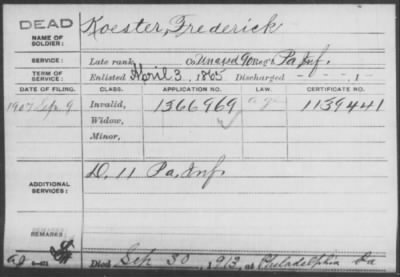 DEAD
NAME OF SOLDIER: Koester, Frederick
SERVICE: Late rank, Co. Unas'd 90 Reg't Pa. Inf.
TERM OF SERVICE: Enlisted April 3, 1865 Discharged , 1
DATE OF FILING. CLASS. APPLICATION NO. LAW. CERTIFICATE NO.
1907 Sep. 9 Invalid, 1366969 1139441
Widow,
Minor,
ADDITIONAL SERVICES: D. 11 Pa. Inf.
REMARKS:
Died Sep 30, 1913, at Philadelphia Pa